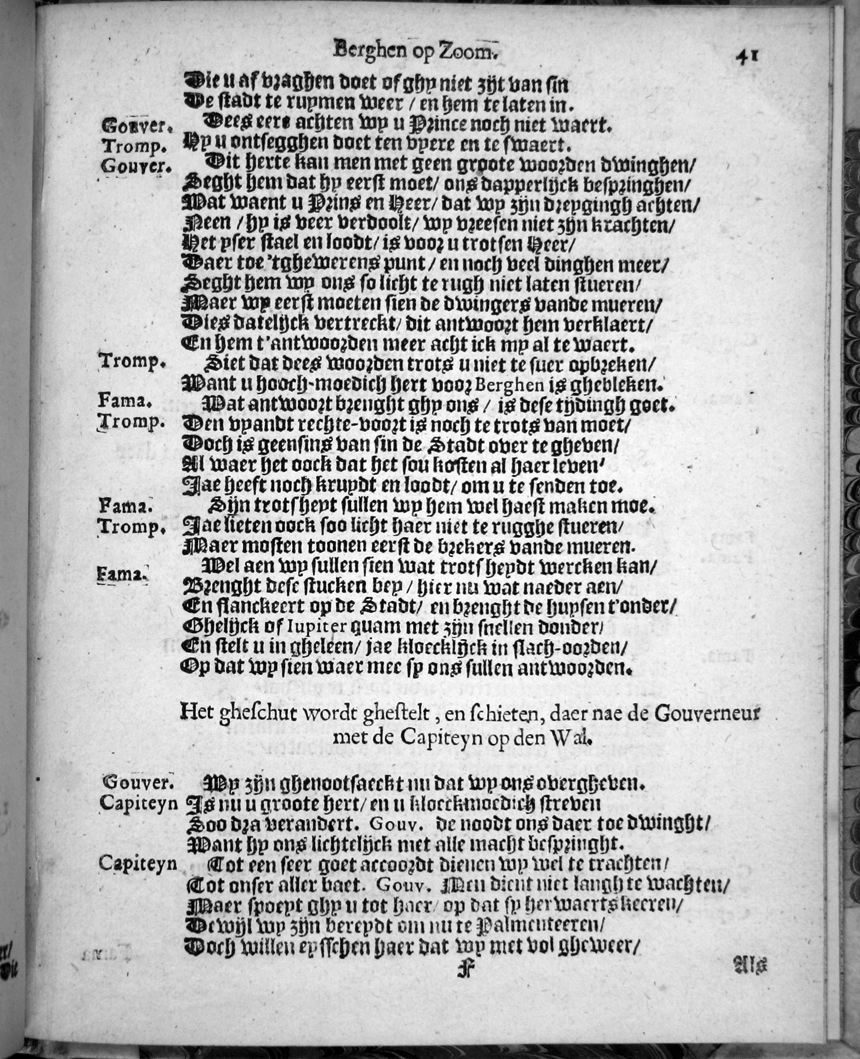 Berghen op Zoom. 41
Die u af vraghen doet of ghy niet zijt van sin
De stadt te ruymen weer / en hem te laten in.
Gouver. Dees eere achten wy u Prince noch niet waert.
Tromp. Hy u ontsegghen doet ten vyere en te swaert.
Gouver. Dit herte kan men met geen groote woorden dwinghen/
Seght hem dat hy eerst moet/ ons dapperlijck bespringhen/
Wat waent u Prins en Heer/ dat wy zijn dreygingh achten/
Neen / hy is veer verdoolt/ wy vreesen niet zijn krachten/
Het yser stael en loodt/ is voor u trotsen Heer/
Daer toe 'tghewerens punt / en noch veel dinghen meer/
Seght hem wy ons so licht te rugh niet laten stueren/
Maer wy eerst moeten sien de dwingers vande mueren/
Dies datelijck vertreckt/ dit antwoort hem verklaert/
En hem t'antwoorden meer acht ick my al te waert.
Tromp. Siet dat dees woorden trots u niet te suer opbreken/
Want u hooch-moedich hert voor Berghen is ghebleken.
Fama. Wat antwoort brenght ghy ons / is dese tijdingh goet.
Tromp. Den vyandt rechte-voort is noch te trots van moet/
Doch is geensins van sin de Stadt over te gheven/
Al waer het oock dat het sou kosten al haer leven'
Jae heeft noch kruydt en loodt/ om u te senden toe.
Fama. Sijn trotsheyt sullen wy hem wel haest maken moe.
Tromp. Jae lieten oock soo licht haer niet te rugghe stueren/
Maer mosten toonen eerst de brekers vande mueren.
Fama. Wel aen wy sullen sien wat trotsheydt wercken kan/
Brenght dese stucken bey / hier nu wat naeder aen/
En flanckeert op de Stadt/ en brenght de huysen t'onder/
Ghelijck of Iupiter quam met zijn snellen donder/
En stelt u in gheleen/ jae kloecklijck in slach-oorden/
Op dat wy sien waer mee sy ons sullen antwoorden.
Het gheschut wordt ghestelt, en schieten, daer nae de Gouverneur
met de Capiteyn op den Wal.
Gouver. Wy zijn ghenootsaeckt nu dat wy ons overgheven.
Capiteyn Is nu u groote hert/ en u kloeckmoedich streven
Soo dra verandert. Gouv. de noodt ons daer toe dwinght/
Want hy ons lichtelijck met alle macht bespringht.
Capiteyn Tot een seer goet accoordt dienen wy wel te trachten/
Tot onser aller baet. Gouv. Men dient niet langh te wachten/
Maer spoeyt ghy u tot haer/ op dat sy herwaerts keeren/
Dewijl wy zijn bereydt om nu te Palmenteeren/
Doch willen eysschen haer dat wy met vol gheweer/
F Als